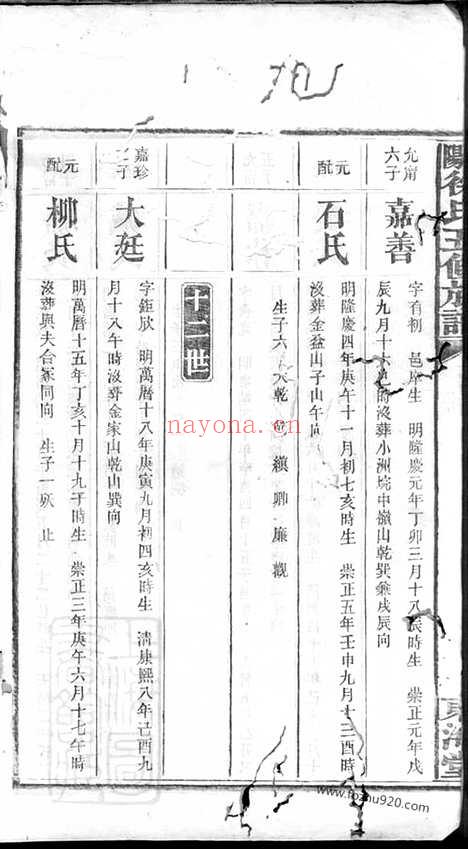 陽徐氏五修族譜
東海堂
允甯
六子
嘉善
字有初 邑庠生 明隆慶元年丁卯三月十八辰時生 崇正元年戊
辰九月十六 時沒葬小洲垸中嶺山乾巽兼戌辰向
元配
石氏
明隆慶四年庚午十一月初七亥時生 崇正五年壬申九月十三酉時
沒葬金益山子山午向
生子六 大乾 縝 卿 廉 觀
十二世
嘉珍
子
大廷
字鉅欣 明萬曆十八年庚寅九月初四亥時生 清康熙八年己酉九
月十八午時沒葬金家山乾山巽向
元配
柳氏
明萬曆十五年丁亥十月十九午時生 崇正三年庚午六月十七午時
沒葬與夫合冢同向 生子一 止
nayona.cn
www.fozhu920.com